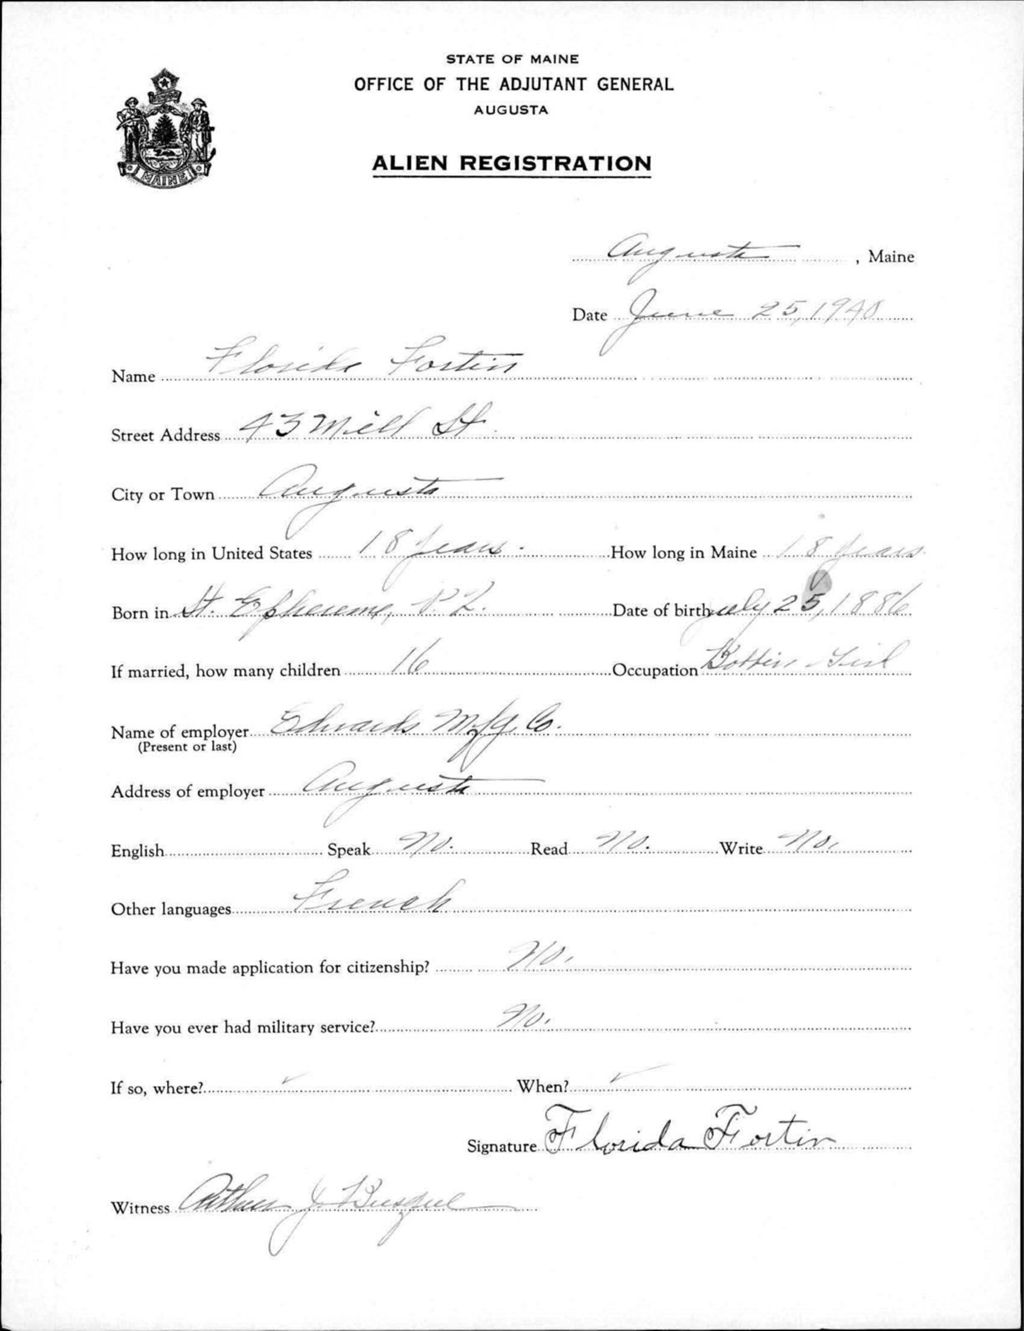 STATE OF MAINE
OFFICE OF THE ADJUTANT GENERAL
AUGUSTA
ALIEN REGISTRATION
MAINE
Augusta, Maine
Date June 25, 1940
Name Florida Fortin
Street Address 43 Mill St.
City or Town Augusta
How long in United States 18 years. How long in Maine 18 years
Born in St. Ephereme, P.Q. Date of birth July 25, 1886
If married, how many children 16 Occupation Bobbin Girl
Name of employer Edwards Mfg. Co.
(Present or last)
Address of employer Augusta
English Speak No. Read No. Write No.
Other languages French
Have you made application for citizenship? No.
Have you ever had military service? No.
If so, where? ✓ When? ✓
Signature Florida Fortin
Witness Arthur J.